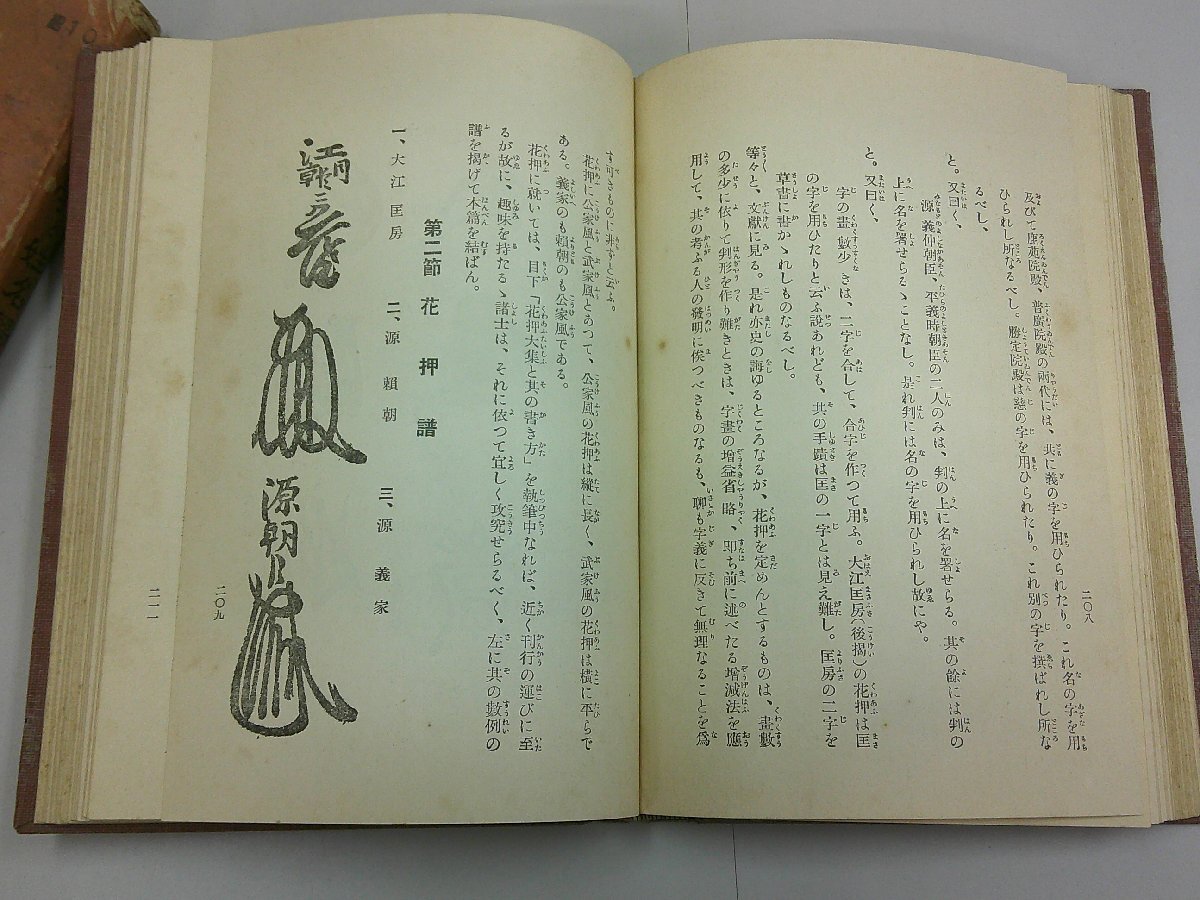 及びて鹿苑院殿、普廣院殿の兩代には、共に義の字を用ひられたり。これ名の字を用
ひられし所なるべし。勝定院殿は慈の字を用ひられたり。これ別の字を撰ばれし所な
るべし。
と。又曰く、
源義仰朝臣、平義時朝臣の二人のみは、判の上に名を署せらる。其の餘には判の
上に名を署せらるゝことなし。是れ判には名の字を用ひられし故にや。
と。又曰く、
字の畫數少きは、二字を合して、合字を作つて用ふ。大江匡房(後掲)の花押は匡
の字を用ひたりと云ふ説あれども、其の手蹟は匡の一字とは見え難し。匡房の二字を
草書に書かゝれしものなるべし。
等々と、文獻に見る。是れ亦史の誨ゆるところなるが、花押を定めんとするものは、畫數
の多少に依りて判形を作り難きときは、字畫の增益省略、即ち前に述べたる增減法を應
用して、其の考ふる人の發明に俟つべきものなるも、聊も字義に反きて無理なることを爲
二〇八
す可きものに非ずと云ふ。
花押に公家風と武家風とあつて、公家風の花押は縱に長く、武家風の花押は橫に平らで
ある。義家のも賴朝のも公家風である。
花押に就いては、目下「花押大集と其の書き方」を執筆中なれば、近く刊行の運びに至
るが故に、趣味を持たるゝ諸士は、それに依つて宜しく攻究せらるべく、左に其の數例の
譜を揭げて本篇を結ばん。
第二節 花押譜
一、大江匡房
二、源賴朝
三、源義家
源朝臣
二〇九
二一一